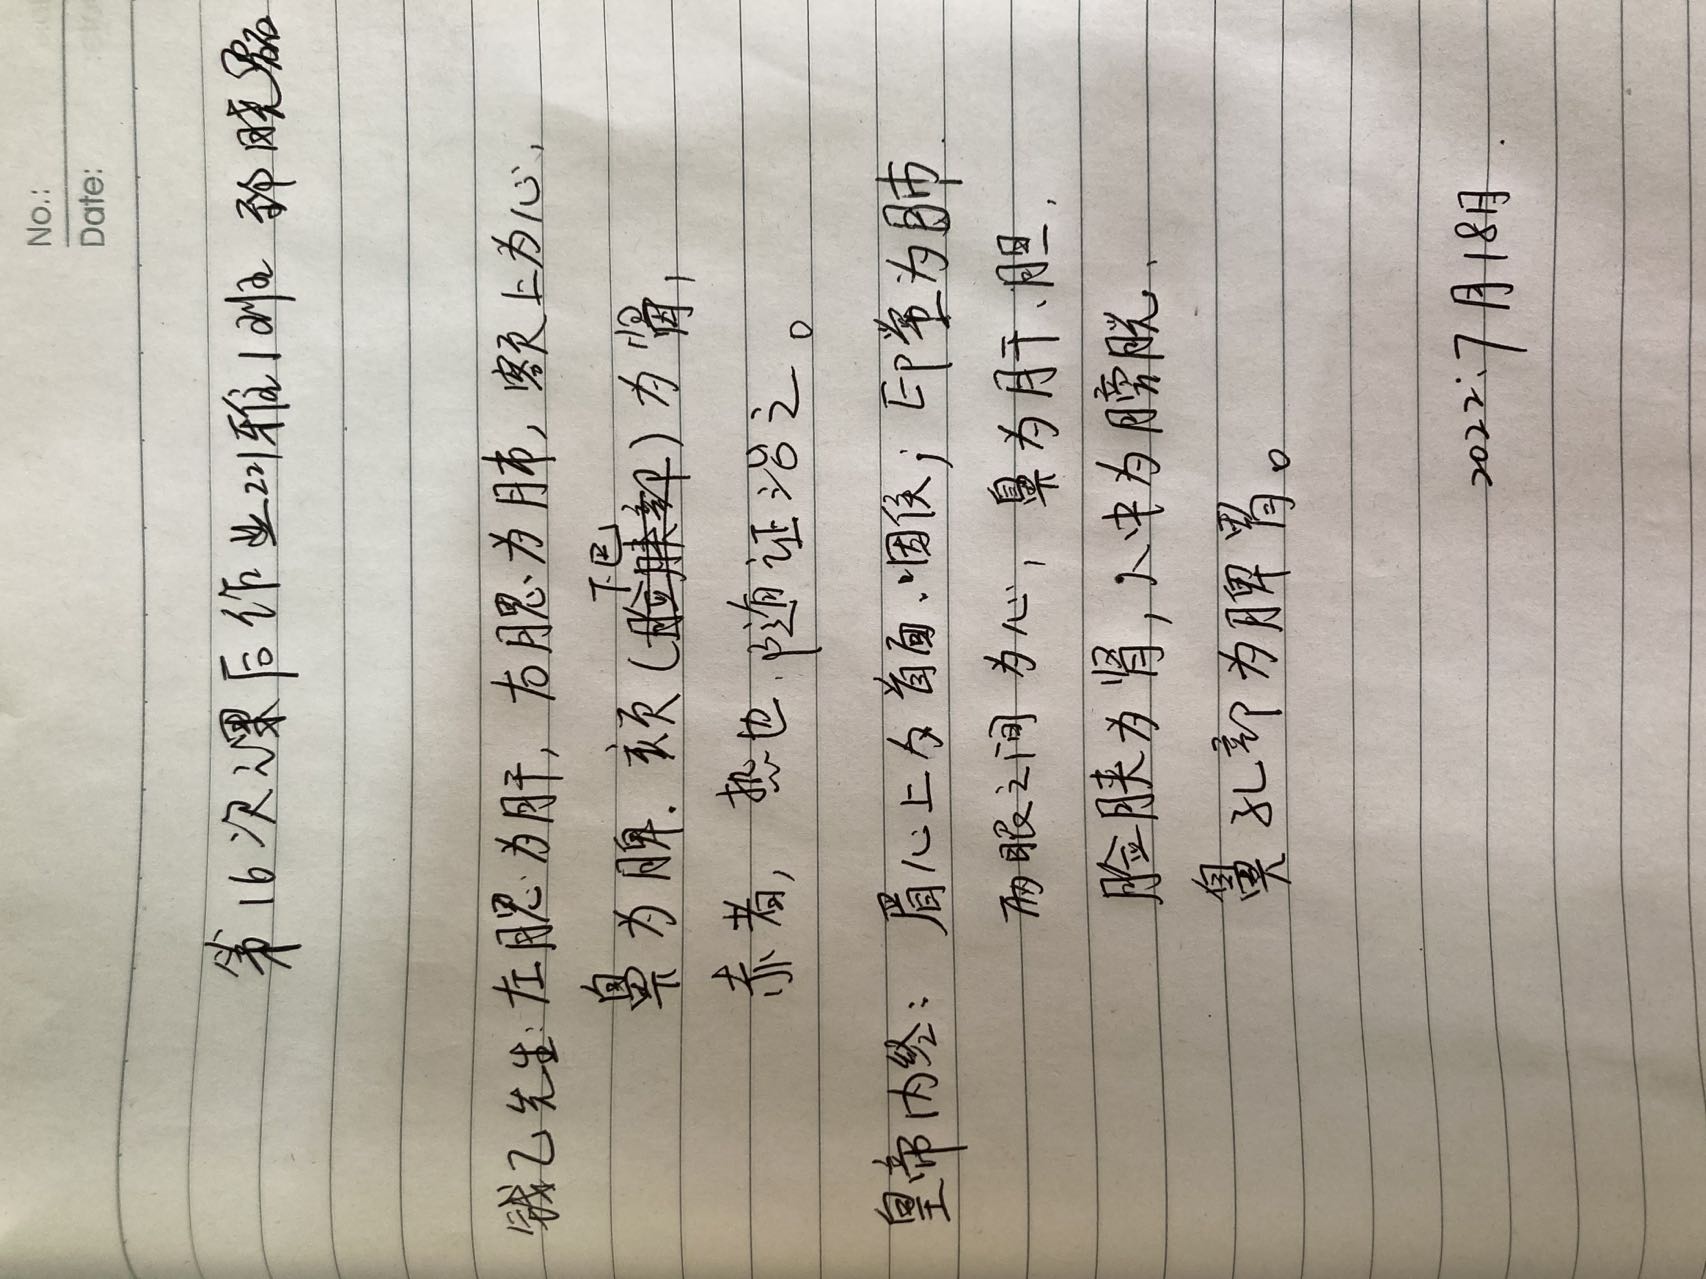 No.:
Date:
第16次课后作业221班 晓磊
钱乙先生:左腮为肝,右腮为肺,额上为心,
下巴
鼻为脾.颏(脸胅部)为肾,
赤者,热也.随证治之。
皇帝内经:眉心上为首面.咽侯;印堂为肺.
两眼之间为心,鼻为肝、胆,
脸胅为肾,人中为膀胱、
鼻孔部为脾胃。
2022.7月18月.